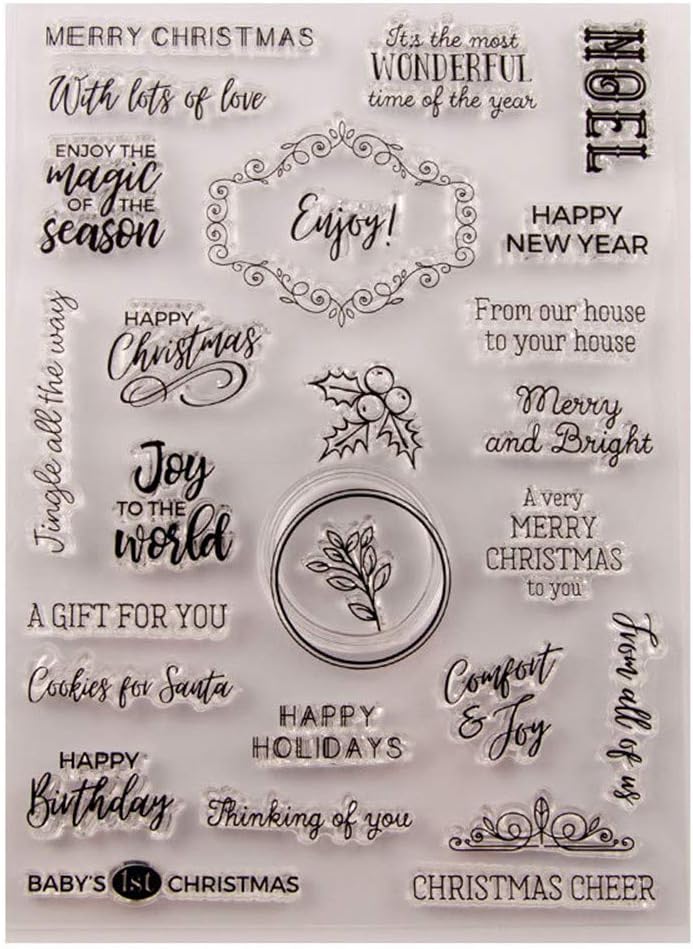 MERRY CHRISTMAS
With lots of love
It's the most
WONDERFUL
time of the year
NOEL
ENJOY THE
magic
OF THE
season
Enjoy!
HAPPY
NEW YEAR
Jingle all the way
HAPPY
Christmas
From our house
to your house
Merry
and Bright
Joy
TO THE
world
A very
MERRY
CHRISTMAS
to you
A GIFT FOR YOU
Cookies for Santa
Comfort
& Joy
From all of us
HAPPY
HOLIDAYS
HAPPY
Birthday
Thinking of you
BABY'S 1st CHRISTMAS
CHRISTMAS CHEER